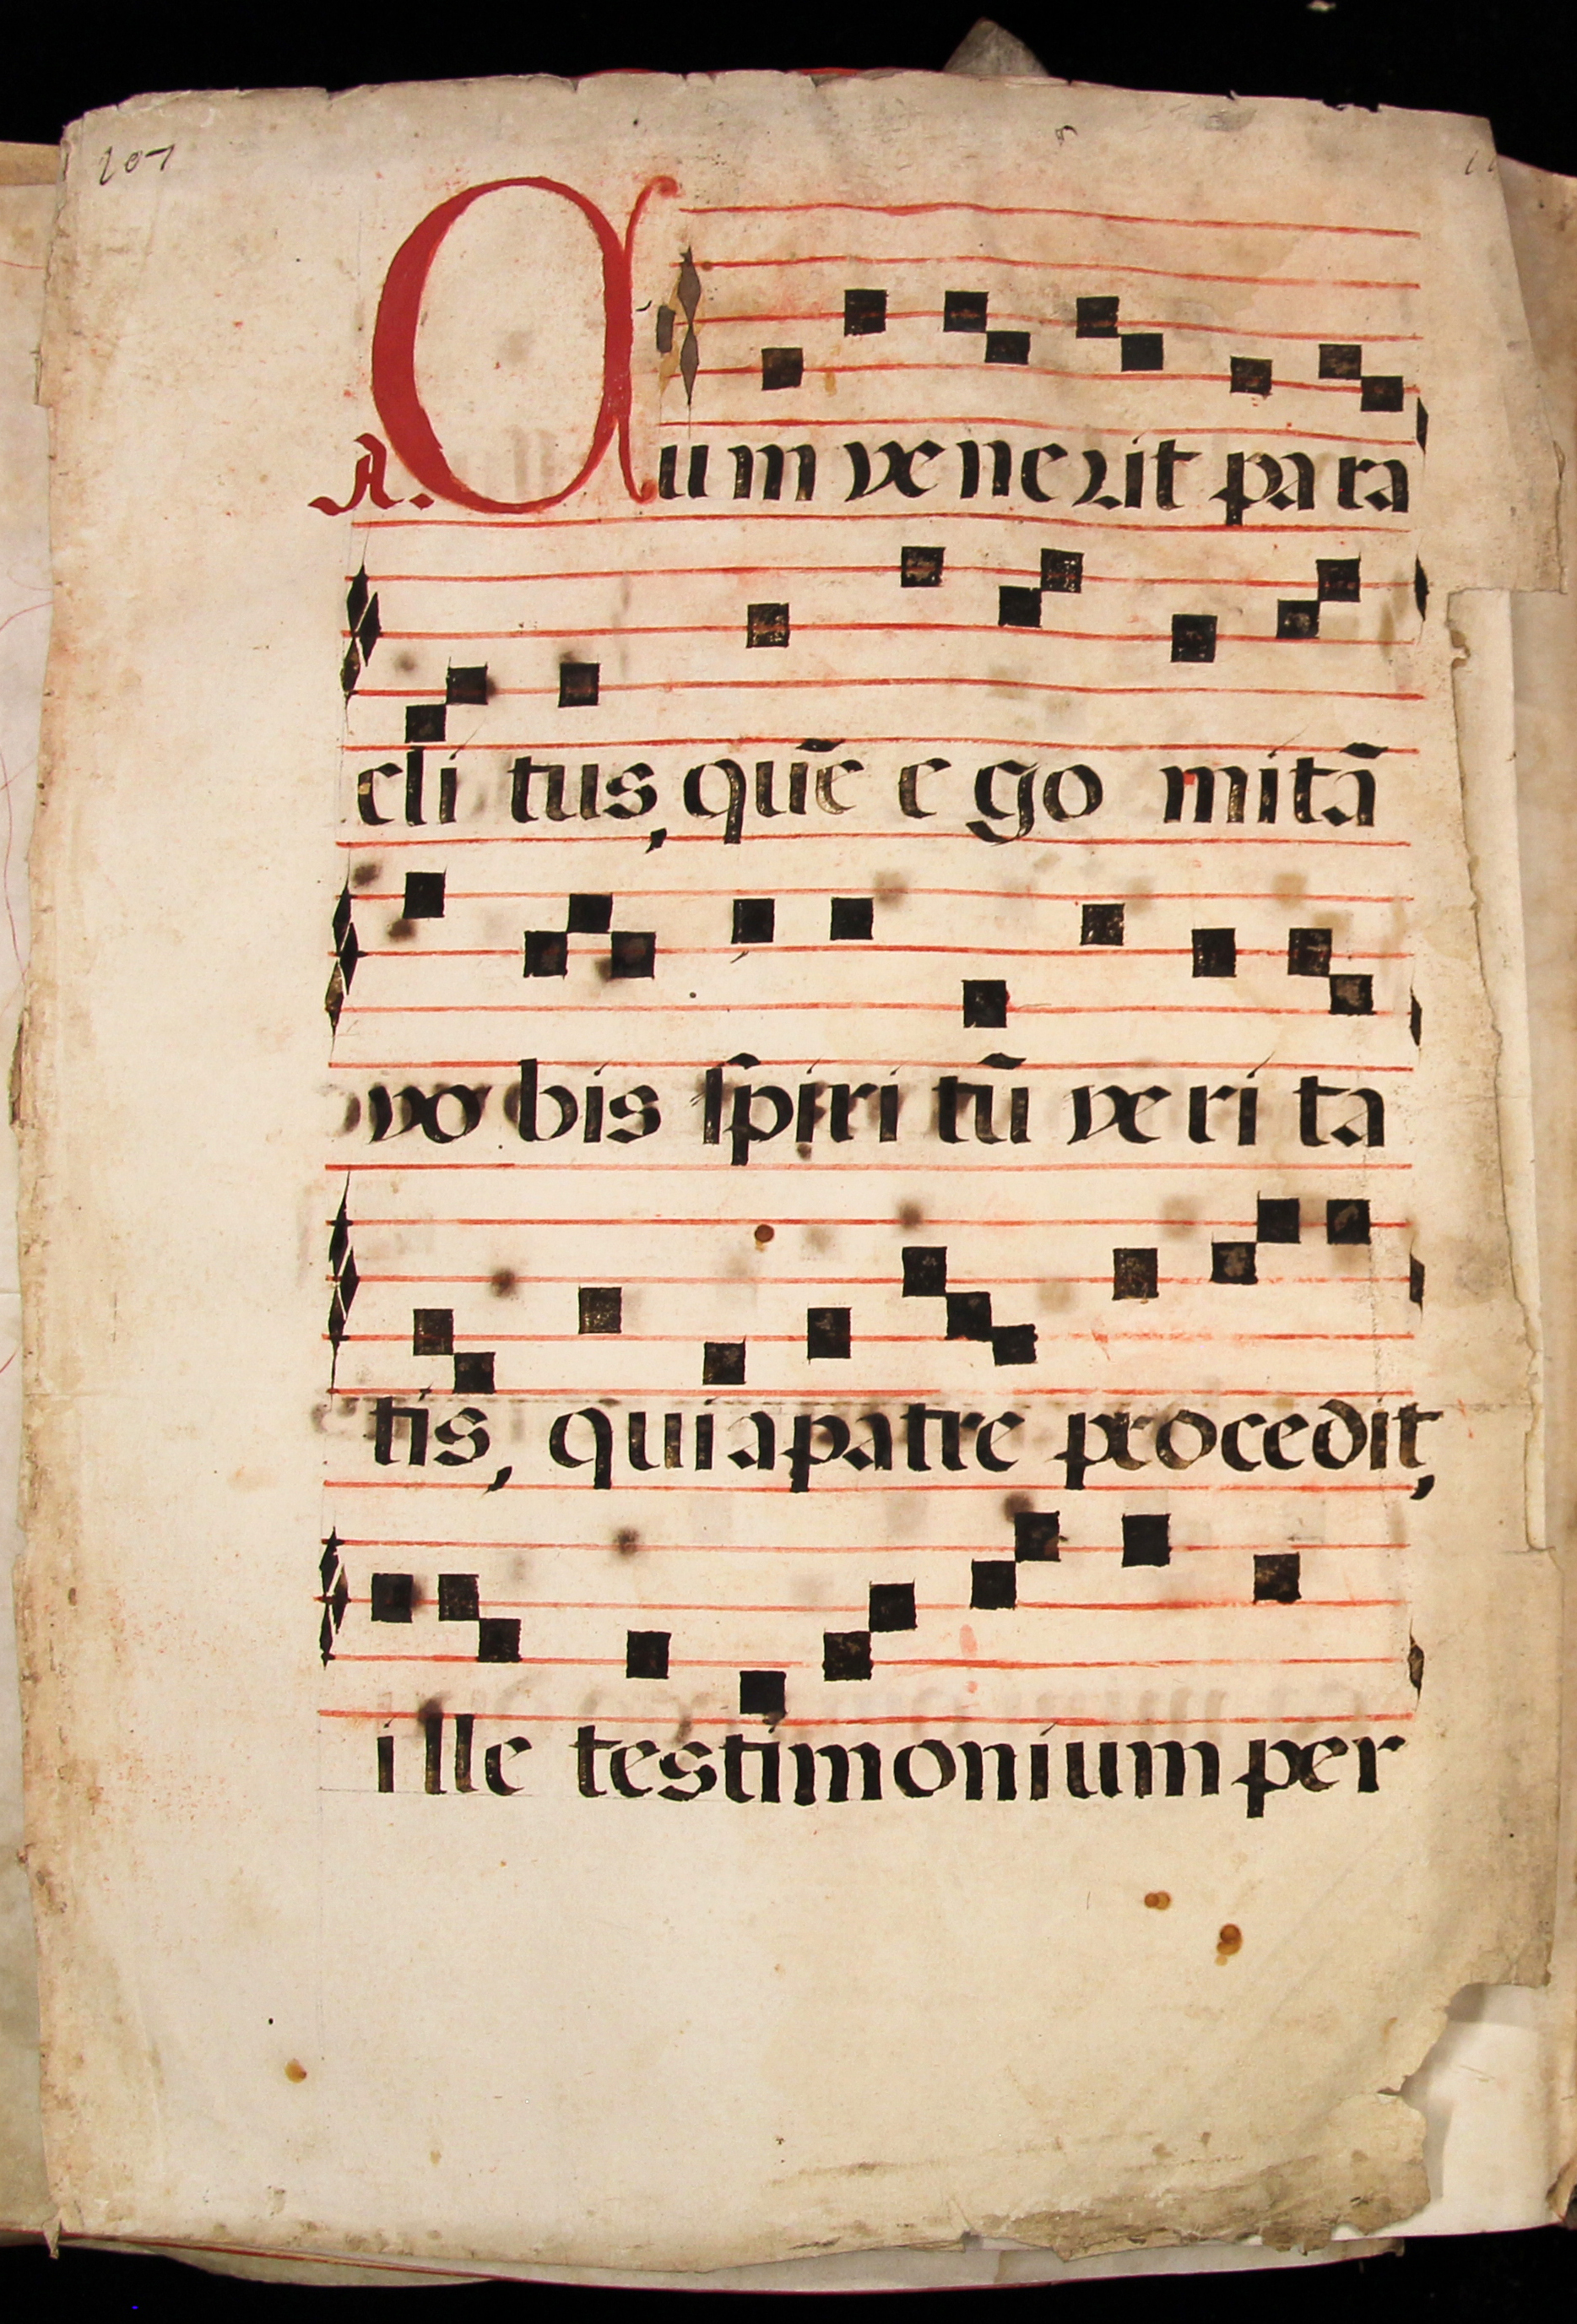 107
A. Cum venerit para
cli tus, quē e go mitā
vo bis spiri tū veri ta
tis, quia patre procedit,
ille testimonium per